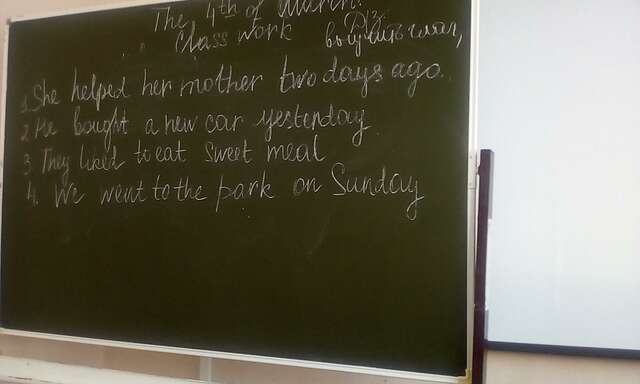 The 4th of March.
Class work
Д/з
выучить глаг,
1. She helped her mother two days ago.
2. He bought a new car yesterday.
3. They liked to eat sweet meal
4. We went to the park on Sunday